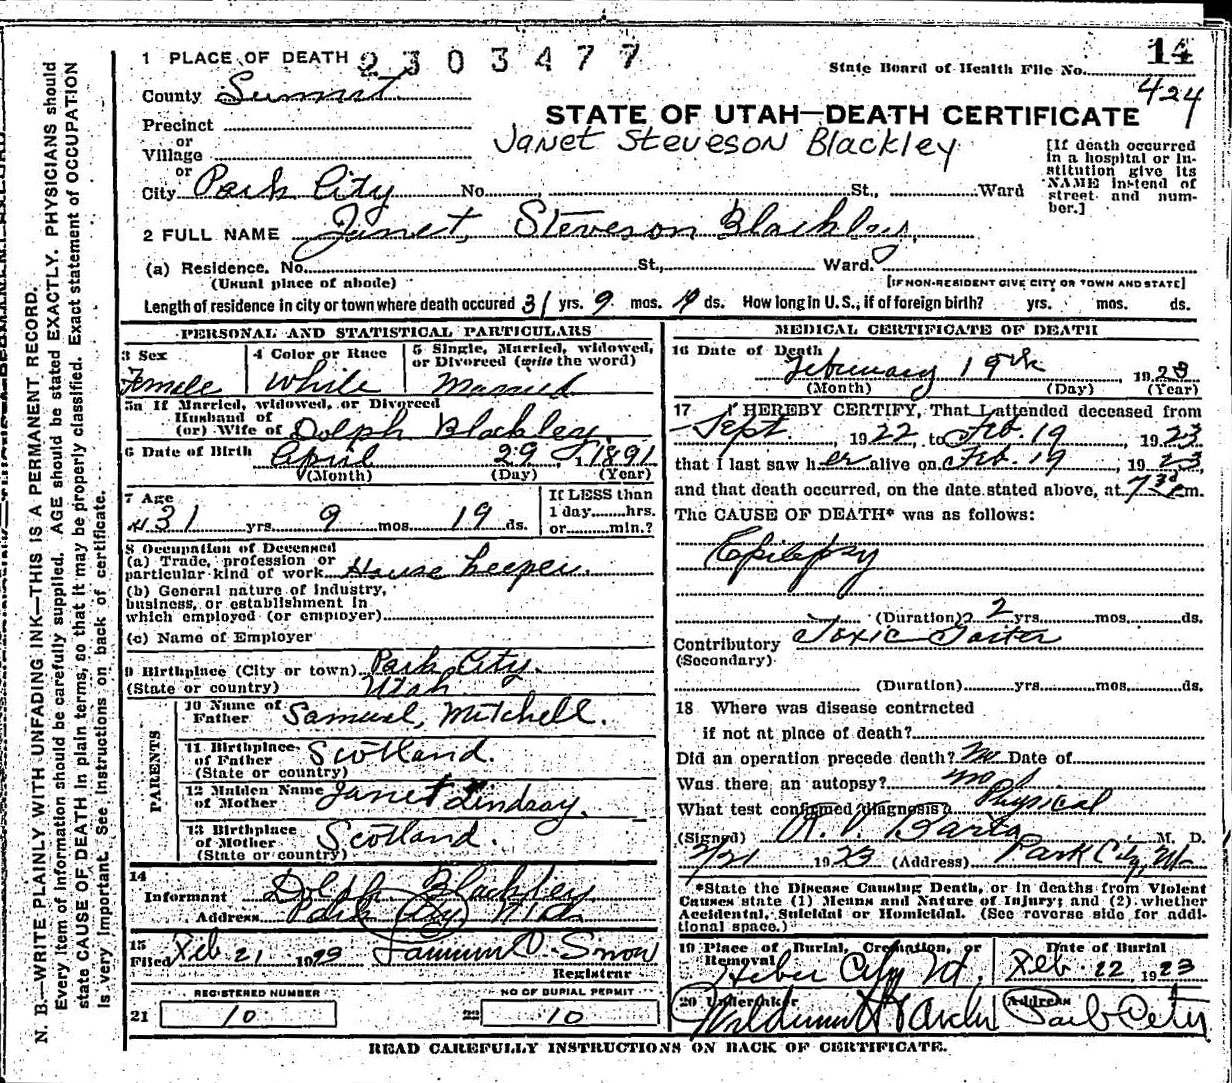 14
1 PLACE OF DEATH 2 3 0 3 4 7 7
State Board of Health File No.
424
County Summit
STATE OF UTAH—DEATH CERTIFICATE
Precinct
Janet Steveson Blackley
or
Village
or
City Park City No. St., Ward
[If death occurred in a hospital or institution give its NAME instead of street and number.]
2 FULL NAME Janet, Steveson Blackley,
(a) Residence. No. St., Ward.
(Usual place of abode) [IF NON-RESIDENT GIVE CITY OR TOWN AND STATE]
Length of residence in city or town where death occured 31 yrs. 9 mos. 19 ds. How long in U.S., if of foreign birth? yrs. mos. ds.
PERSONAL AND STATISTICAL PARTICULARS
3 Sex
Female
4 Color or Race
White
5 Single, Married, widowed, or Divorced (write the word)
Married
5a If Married, widowed, or Divorced
Husband of
(or) Wife of Dolph Blackley
6 Date of Birth April 29 1891
(Month) (Day) (Year)
7 Age
31 yrs. 9 mos. 19 ds.
If LESS than
1 day hrs.
or min.?
8 Occupation of Deceased
(a) Trade, profession or
particular kind of work House keeper.
(b) General nature of industry,
business, or establishment in
which employed (or employer)
(c) Name of Employer
9 Birthplace (City or town) Park City.
(State or country) Utah
PARENTS
10 Name of
Father Samuel, Mitchell.
11 Birthplace
of Father Scotland.
(State or country)
12 Maiden Name
of Mother Janet Lindsay.
13 Birthplace
of Mother Scotland.
(State or country)
14
Informant Dolph Blackley
Address Park City Utah
15
Filed Feb. 21 1923 Snow
Registrar
REGISTERED NUMBER
21 10
NO OF BURIAL PERMIT
22 10
MEDICAL CERTIFICATE OF DEATH
16 Date of Death
February 19th 1923
(Month) (Day) (Year)
17 I HEREBY CERTIFY, That I attended deceased from
Sept. , 1922, to Feb. 19 , 1923
that I last saw her alive on Feb. 19 , 1923
and that death occurred, on the date stated above, at 730 p.m.
The CAUSE OF DEATH* was as follows:
Epilepsy
(Duration) 2 yrs. mos. ds.
Contributory Toxic Goiter
(Secondary)
(Duration) yrs. mos. ds.
18 Where was disease contracted
if not at place of death?
Did an operation precede death? No Date of
Was there an autopsy? no
What test confirmed diagnosis? Physical
(Signed) M. D.
2/21 1923 (Address) Park City, Ut
*State the Disease Causing Death, or in deaths from Violent Causes state (1) Means and Nature of Injury; and (2) whether Accidental, Suicidal or Homicidal. (See reverse side for additional space.)
19 Place of Burial, Cremation, or Removal
Heber City Ut
Date of Burial
Feb. 22, 1923
20 Undertaker
Address
Park City
READ CAREFULLY INSTRUCTIONS ON BACK OF CERTIFICATE.
N. B.—WRITE PLAINLY WITH UNFADING INK—THIS IS A PERMANENT RECORD.
Every item of information should be carefully supplied. AGE should be stated EXACTLY. PHYSICIANS should
state CAUSE OF DEATH in plain terms, so that it may be properly classified. Exact statement of OCCUPATION
is very important. See instructions on back of certificate.